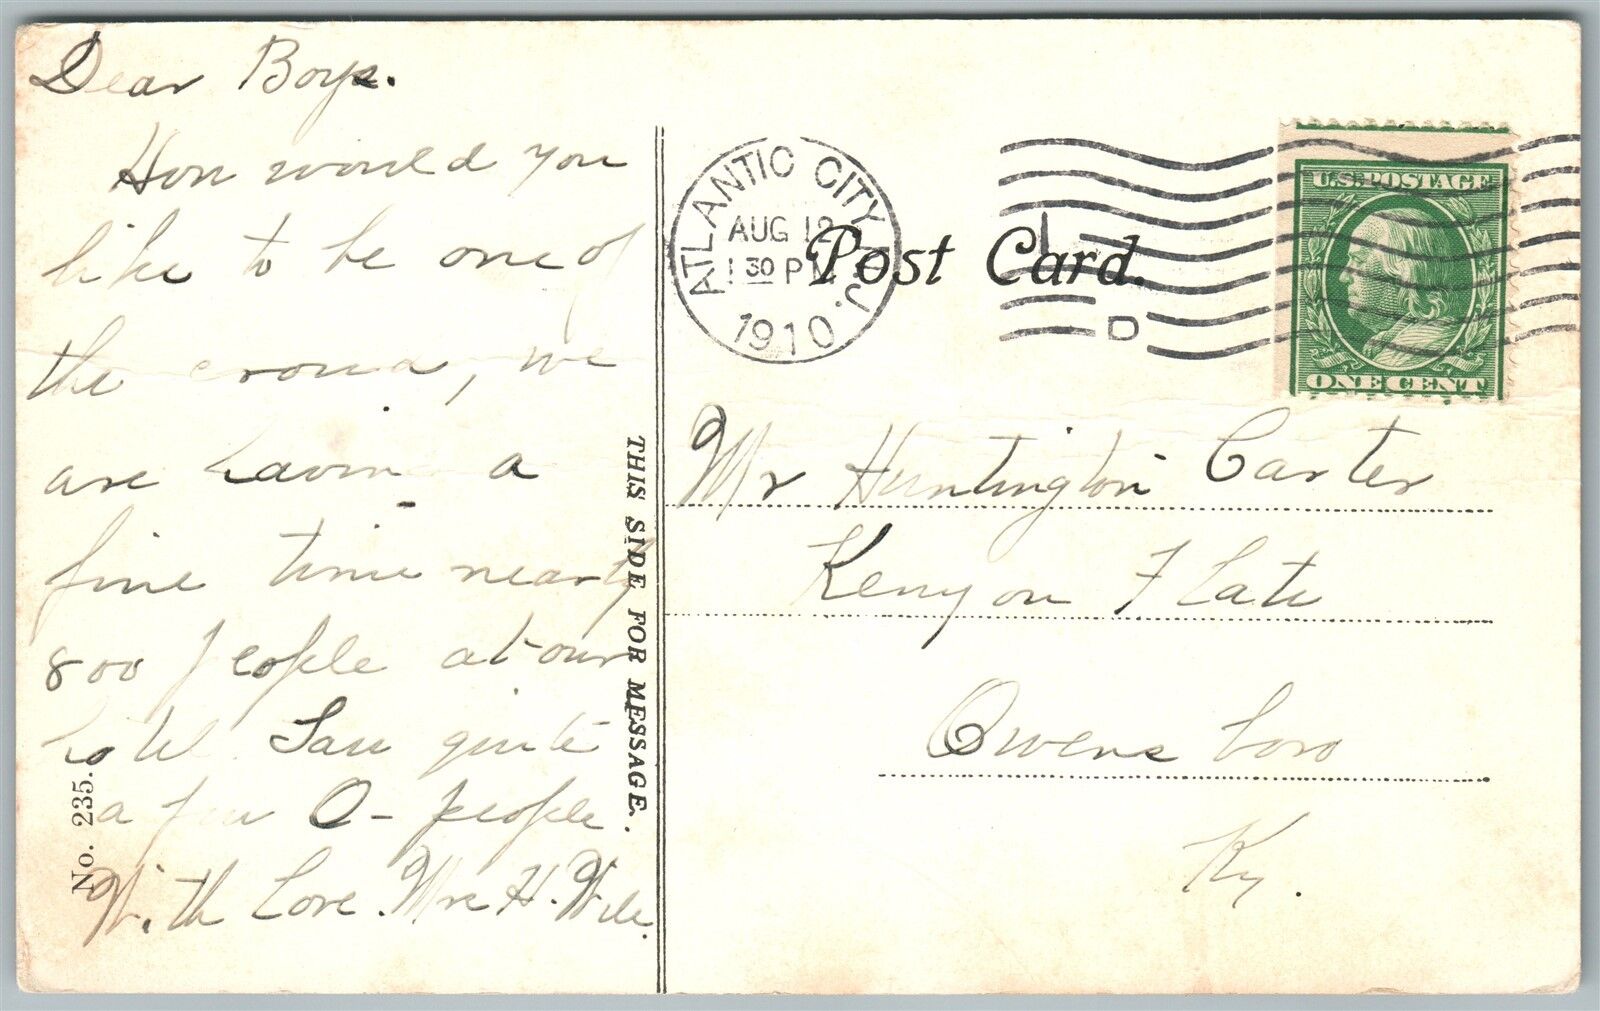 Dear Boys.
How would you
like to be one of
the crowd, we
are having a
fine time nearly
800 people at our
hotel. Saw quite
a few O- people.
With Love. Mrs H.
No. 235.
THIS SIDE FOR MESSAGE.
Post Card.
ATLANTIC CITY, N.J.
AUG 12
1 30 PM
1910
D
U.S. POSTAGE
ONE CENT
Mr Huntington Carter
Kenyon Flats
Owensboro
Ky.